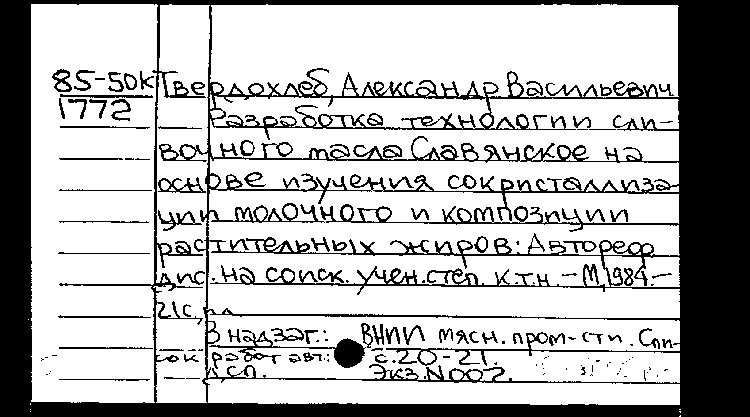 85-50к Твердохлеб, Александр Васильевич
1772
Разработка технологии сли-
вочного масла Славянское на
основе изучения сокристаллиза-
ции молочного и композиции
растительных жиров: Автореф
дис. на соиск. учен. степ. к.т.н. - М, 1984. -
21с, ил
В надзаг.: ВНИИ мясн. пром-сти. Спи-
сок работ авт: с.20-21.
ДСП. Экз.N007.